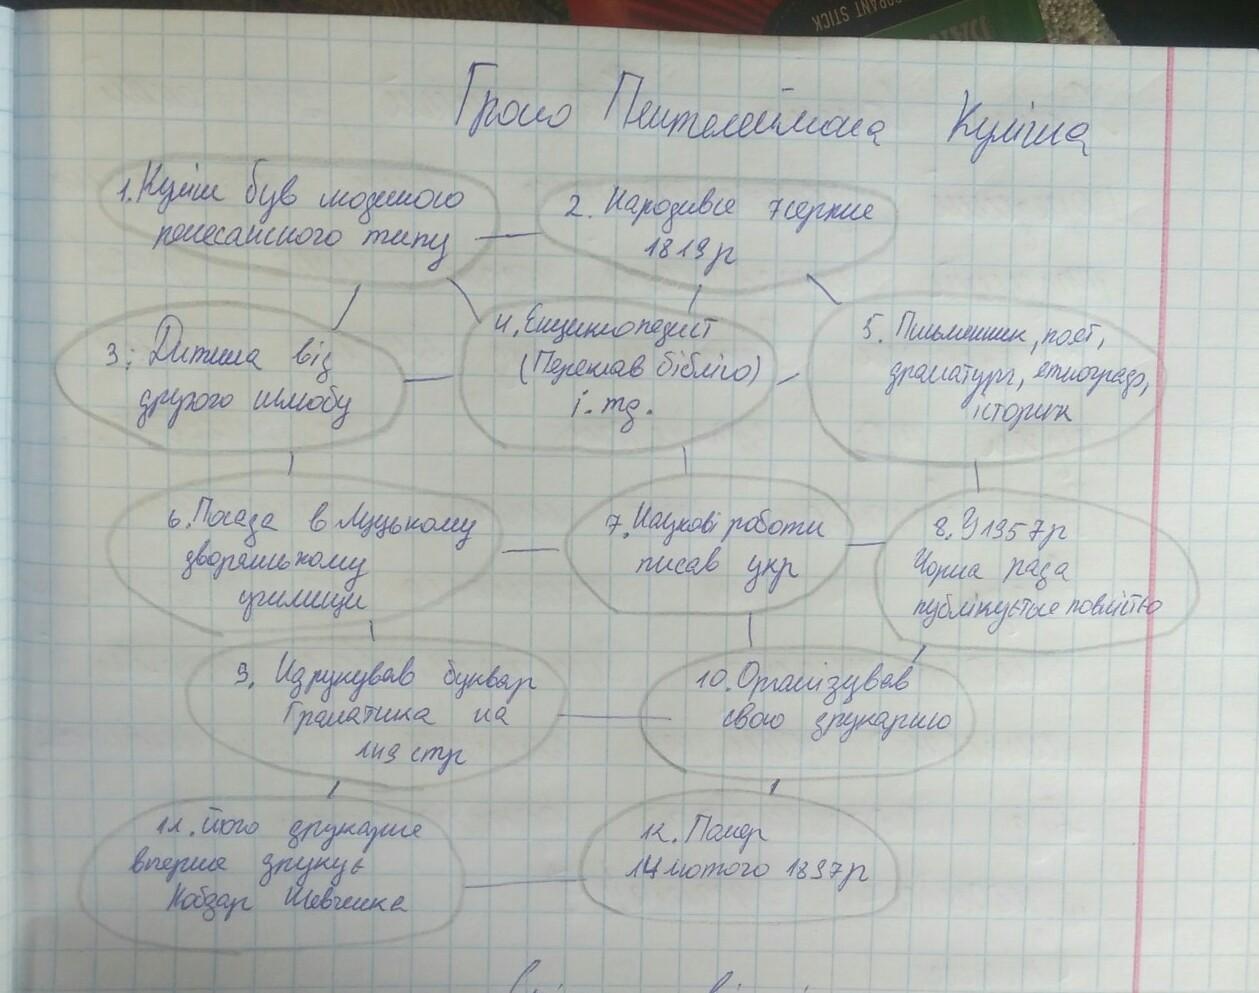 ORANT STICK
Гроно Пантелеймона Куліша
1. Куліш був людиною
ренесансного типу
2. Народився 7 серпня
1819р
3. Дитина від
другого шлюбу
4. Енциклопедист
(Переклав біблію)
і. тд.
5. Письменник, поет,
драматург, етнограф,
історик
6. Посада в Луцькому
дворянському
училищі
7. Наукові роботи
писав укр
8. У 1857р
Чорна рада
публікується повністю
9. Надрукував буквар
Граматика на
149 стр
10. Організував
свою друкарню
11. Його друкарня
вперше друкує
Кобзар Шевченка
12. Помер
14 лютого 1897р